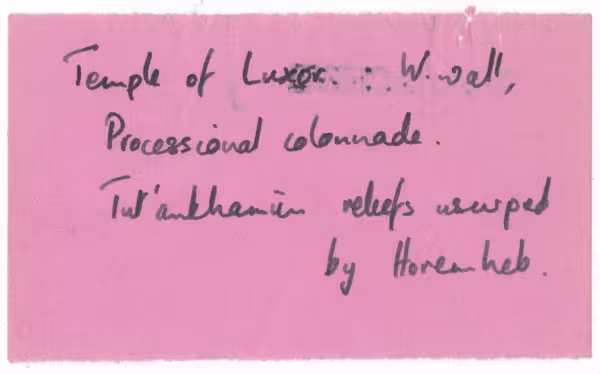 Temple of Luxor : W. wall,
Processional colonnade.
Tut'ankhamūn reliefs usurped
by Horemheb.